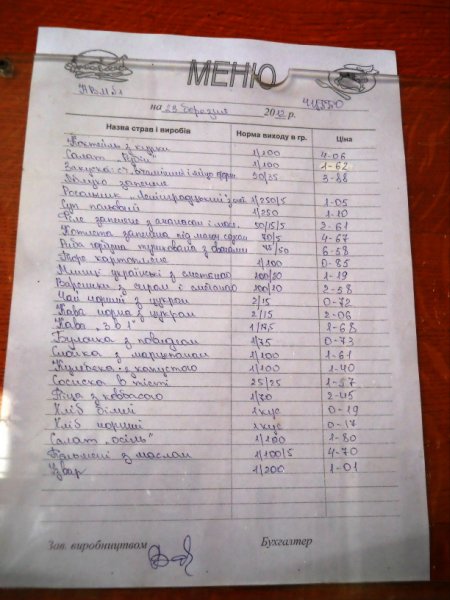 МЕНЮ
на 23 березня 2012 р.
Назва страв і виробів Норма виходу в гр. Ціна
Коктейль з курки 1/100 4-06
Салат 1/100 1-62
Закуска 50/25 3-88
Яблуко запечене
Розсольник „Ленінградський" 1/250/5 1-05
Суп 1/250 1-10
Філе запечене з ананасом і 50/15/5 2-61
Котлета запечена під 70/5 4-67
Риба тушкована з овочами 75/50 6-58
Пюре картопляне 1/100 0-85
Млинці українські з сметаною 100/20 1-19
Вареники з сиром і сметаною 200/20 2-58
Чай чорний з цукром 2/15 0-72
Кава чорна з цукром 2/15 2-06
Кава „3 в 1" 1-68
Булочка з повидлом 1/75 0-73
Слойка з марципаном 1/100 1-61
з капустою 1/100 1-40
Сосиска в тісті 25/25 1-57
Піца з ковбасою 1/70 2-45
Хліб білий 1 кус 0-19
Хліб чорний 1 кус 0-17
Салат „осінь" 1/100 1-80
Пельмені з маслом 1/100/5 4-70
Узвар 1/200 1-01
Зав. виробництвом Бухгалтер